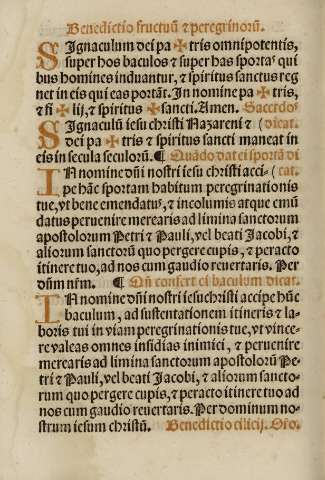 Benedictio fructuū ⁊ peregrinorū.
SIgnaculum dei pa ✠ tris omnipotentis,
super hos baculos ⁊ super has sportas qui
bus homines induantur, ⁊ spiritus sanctus reg
net in eis qui eas portāt. In nomine pa ✠ tris,
⁊ fi ✠ lij, ⁊ spiritus ✠ sancti. Amen. Sacerdos
SIgnaculū iesu christi Nazareni ⁊ (dicat.
dei pa ✠ tris ⁊ spiritus sancti maneat in
eis in secula seculorū. ¶ Quādo dat ei sportā di
IN nomine dn̄i nostri iesu christi acci- (cat.
pe hāc sportam habitum peregrinationis
tue, vt bene emendatꝰ, ⁊ incolumis atque emū
datus peruenire merearis ad limina sanctorum
apostolorum Petri ⁊ Pauli, vel beati Jacobi, ⁊
aliorum sanctorū quo pergere cupis, ⁊ peracto
itinere tuo, ad nos cum gaudio reuertaris. Per
dn̄m nr̄m. ¶ Qn̄ confert ei baculum dicat.
IN nomine dn̄i nostri iesu christi accipe hūc
baculum, ad sustentationem itineris ⁊ la-
boris tui in viam peregrinationis tue, vt vince-
re valeas omnes insidias inimici, ⁊ peruenire
merearis ad limina sanctorum apostolorū Pe-
tri ⁊ Pauli, vel beati Jacobi, ⁊ aliorum sancto-
rum quo pergere cupis, ⁊ peracto itinere tuo ad
nos cum gaudio reuertaris. Per dominum no-
strum iesum christū. Benedictio cilicij. Oro.